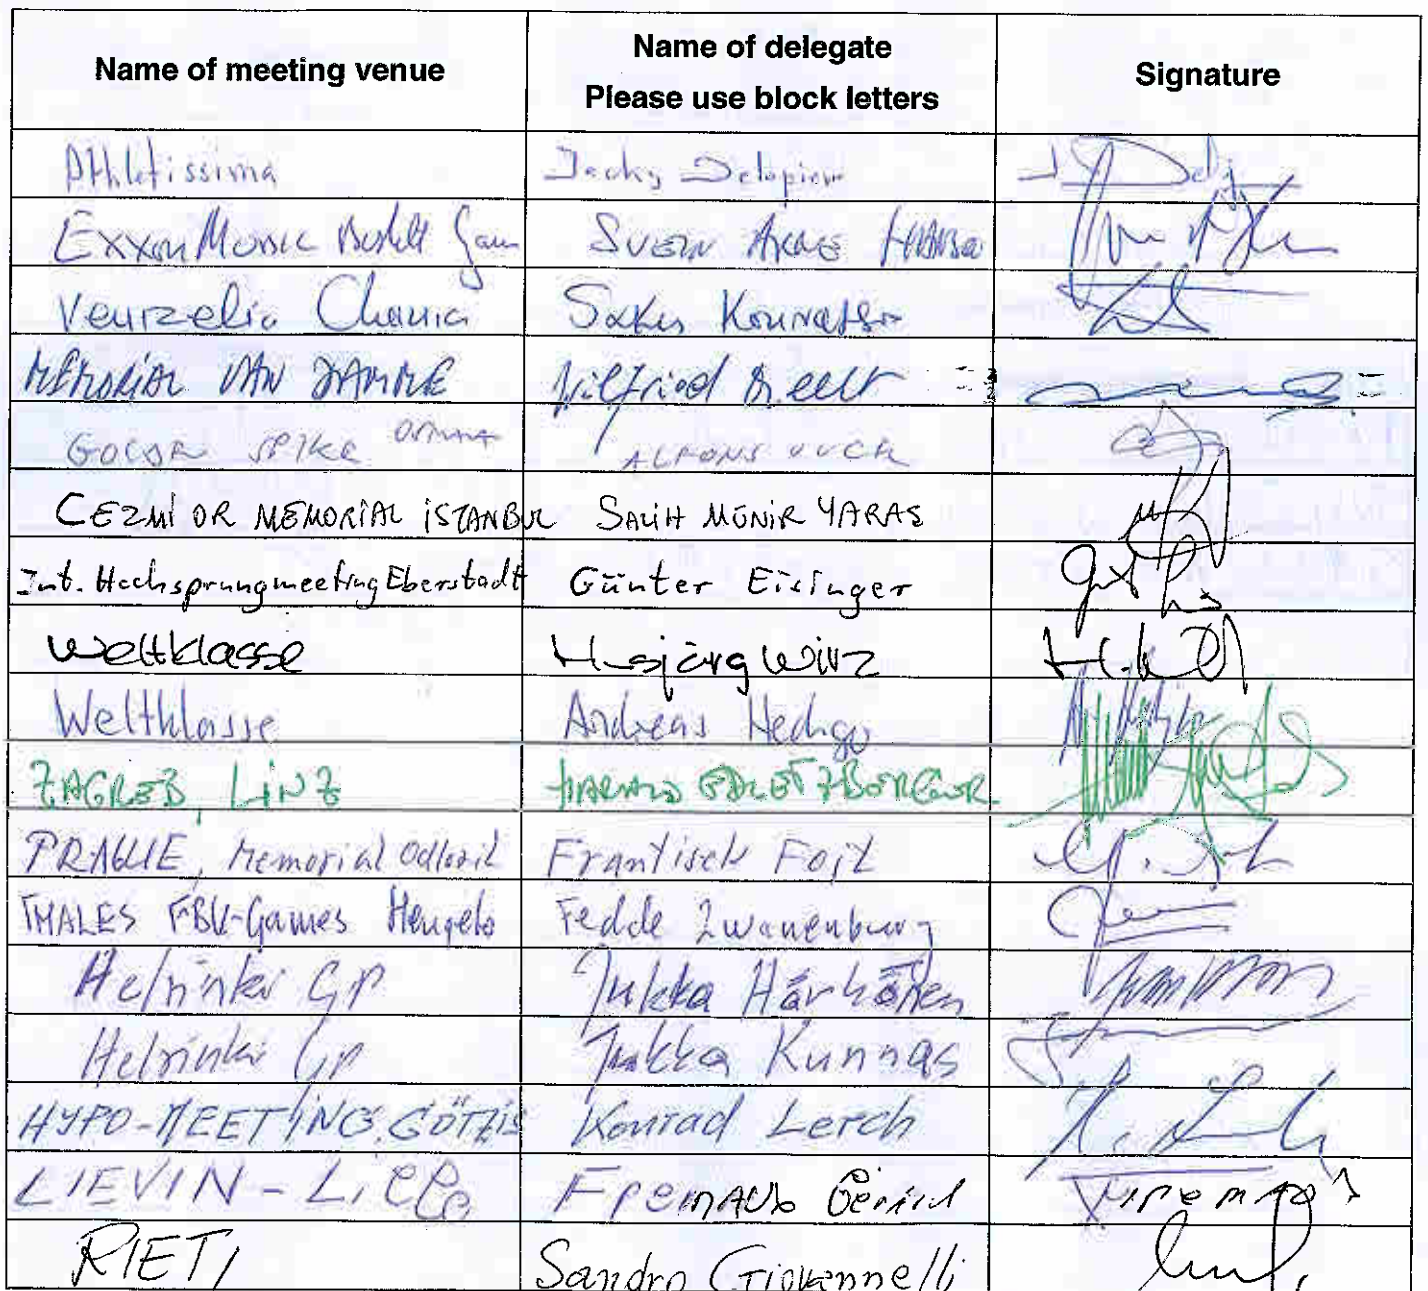 Name of meeting venue
Name of delegate
Please use block letters
Signature
Athletissima Jacky Delapierre
ExxonMobil Bislett Games SVEIN ARNE HANSEN
Venizelia Chania Sakis
MEMORIAL VAN DAMME Wilfried Meert
GOLDEN SPIKE OSTRAVA ALFONS JUCK
CEZMİ OR MEMORİAL İSTANBUL SALİH MÜNİR YARAS
Int. Hochsprungmeeting Eberstadt Günter Eisinger
Weltklasse Hsjörg Wirz
Weltklasse Andreas Hediger
ZAGREB, LINZ HARALD EDLETZBERGER
PRAGUE, Memorial Odlozil Frantisek Fojt
THALES FBK-Games Hengelo Fedde Zwanenburg
Helsinki GP Jukka Härkönen
Helsinki GP Jukka Kunnas
HYPO-MEETING, GÖTZIS Konrad Lerch
LIEVIN - Lille Fremaux Gérard
RIETI Sandro Giovannelli